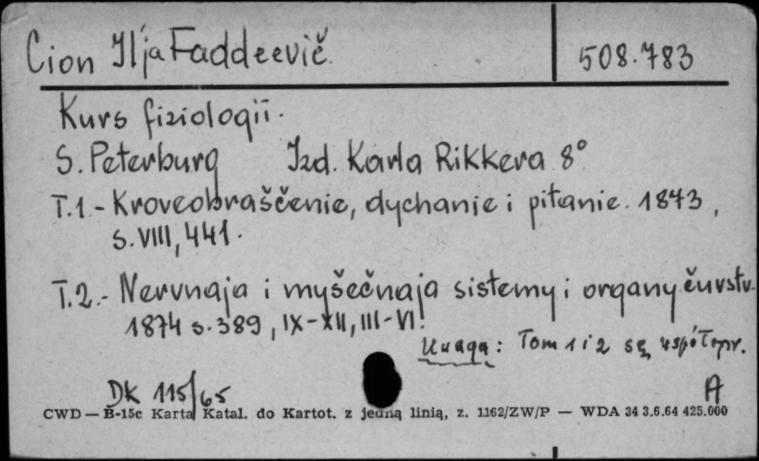 Cion Ilja Faddeevič 508.783
Kurs fiziologii.
S. Peterburg Izd. Karla Rikkera 8°
T.1.- Kroveobraščenie, dychanie i pitanie. 1873,
s. VIII, 441.
T.2.- Nervnaja i myšečnaja sistemy i organy čuvstv.
1874 s. 389, IX-XII, III-VI.
Uwaga: Tom 1 i 2 są współopr.
DK 115/65 A
CWD — B-15c Karta Katal. do Kartot. z jedną linią, z. 1162/ZW/P — WDA 34 3.6.64 425.000